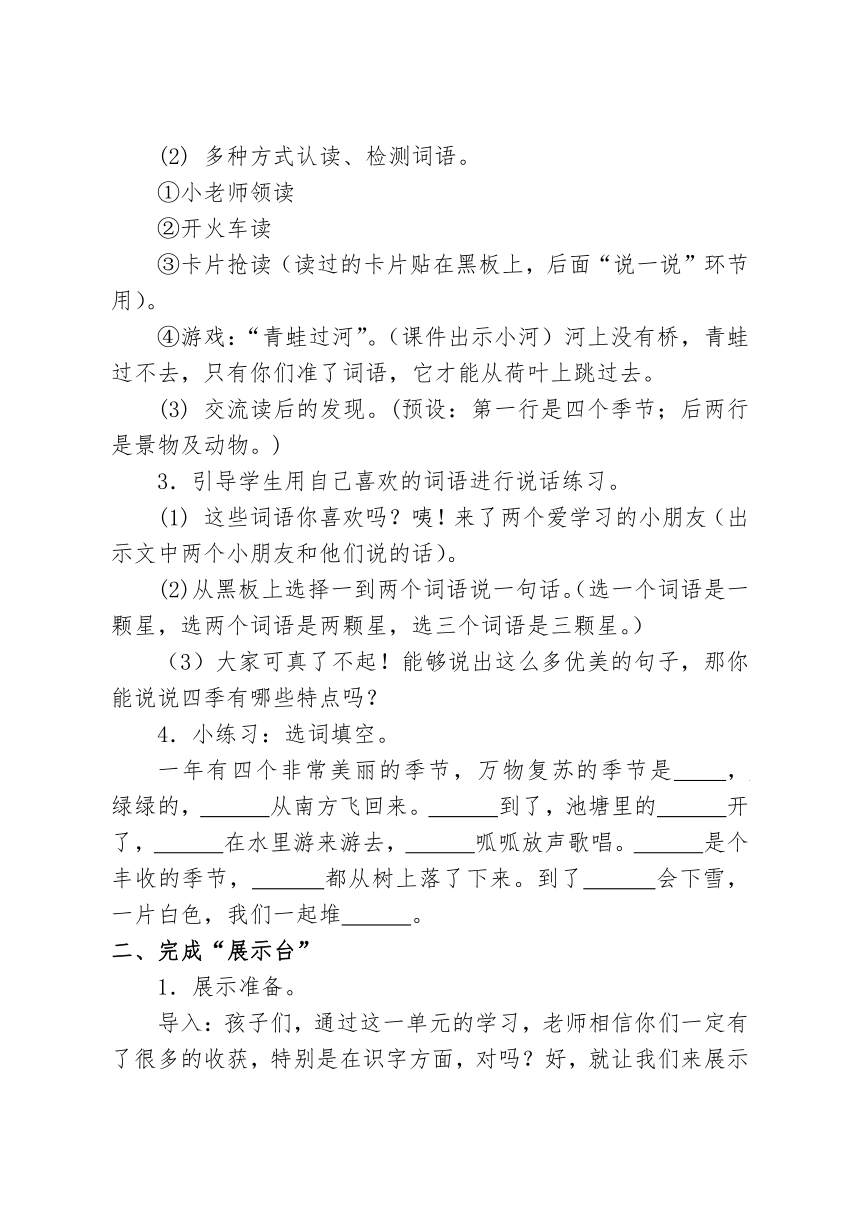 (2) 多种方式认读、检测词语。
①小老师领读
②开火车读
③卡片抢读（读过的卡片贴在黑板上，后面“说一说”环节
用）。
④游戏：“青蛙过河”。（课件出示小河）河上没有桥，青蛙
过不去，只有你们准了词语，它才能从荷叶上跳过去。
(3) 交流读后的发现。(预设：第一行是四个季节；后两行
是景物及动物。)
3．引导学生用自己喜欢的词语进行说话练习。
(1) 这些词语你喜欢吗？咦！来了两个爱学习的小朋友（出
示文中两个小朋友和他们说的话）。
(2)从黑板上选择一到两个词语说一句话。（选一个词语是一
颗星，选两个词语是两颗星，选三个词语是三颗星。）
（3）大家可真了不起！能够说出这么多优美的句子，那你
能说说四季有哪些特点吗？
4．小练习：选词填空。
一年有四个非常美丽的季节，万物复苏的季节是____，
绿绿的，______从南方飞回来。______到了，池塘里的______开
了，______在水里游来游去，______呱呱放声歌唱。______是个
丰收的季节，______都从树上落了下来。到了______会下雪，
一片白色，我们一起堆______。
二、完成“展示台”
1．展示准备。
导入：孩子们，通过这一单元的学习，老师相信你们一定有
了很多的收获，特别是在识字方面，对吗？好，就让我们来展示